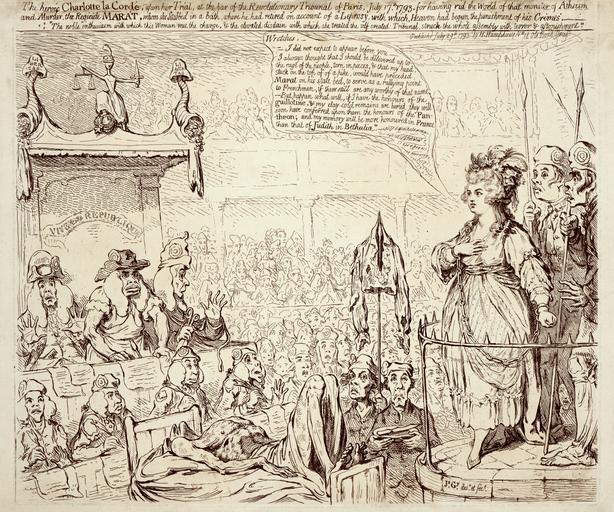 The heroic Charlotte la Cordé, upon her Trial, at the bar of the Revolutionary Tribunal of Paris, July 17th 1793, for having rid the World of that monster of Atheism
and Murder, the Regicide MARAT, whom she Stabbed in a bath, where he had retired on account of a Leprosy, with which, Heaven had begun the punishment of his Crimes.
"The noble enthusiasm with which this Woman met the charge, & the elevated disdain with which she treated the self created Tribunal, struck the whole assembly with terror & astonishment."
Publish'd July 29th 1793, by H. Humphrey No 18 Old Bond Street
Wretches,
I did not expect to appear before you
I always thought that I should be delivered up to
the rage of the people, torn in pieces, & that my head
stuck on the top of a pike, would have preceded
Marat on his state bed, to serve as a rallying point
to Frenchmen, if there still are any worthy of that name
But, happen what will, if I have the honours of the
guillotine, & my clay-cold remains are buried, they will
soon have conferred upon them the honours of the Pan-
theon; and my memory will be more honoured in France
than that of Judith in Bethulia
VIVE la REPUBLIQUE
Js. Gy. des. et fect.